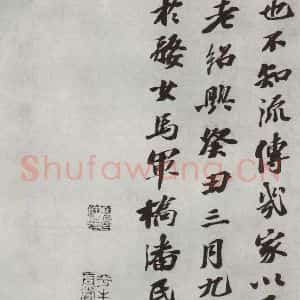 也不知流傳幾家以
老紹興癸丑三月九
於婺女馬軍橋潘氏
Shufawang.CN